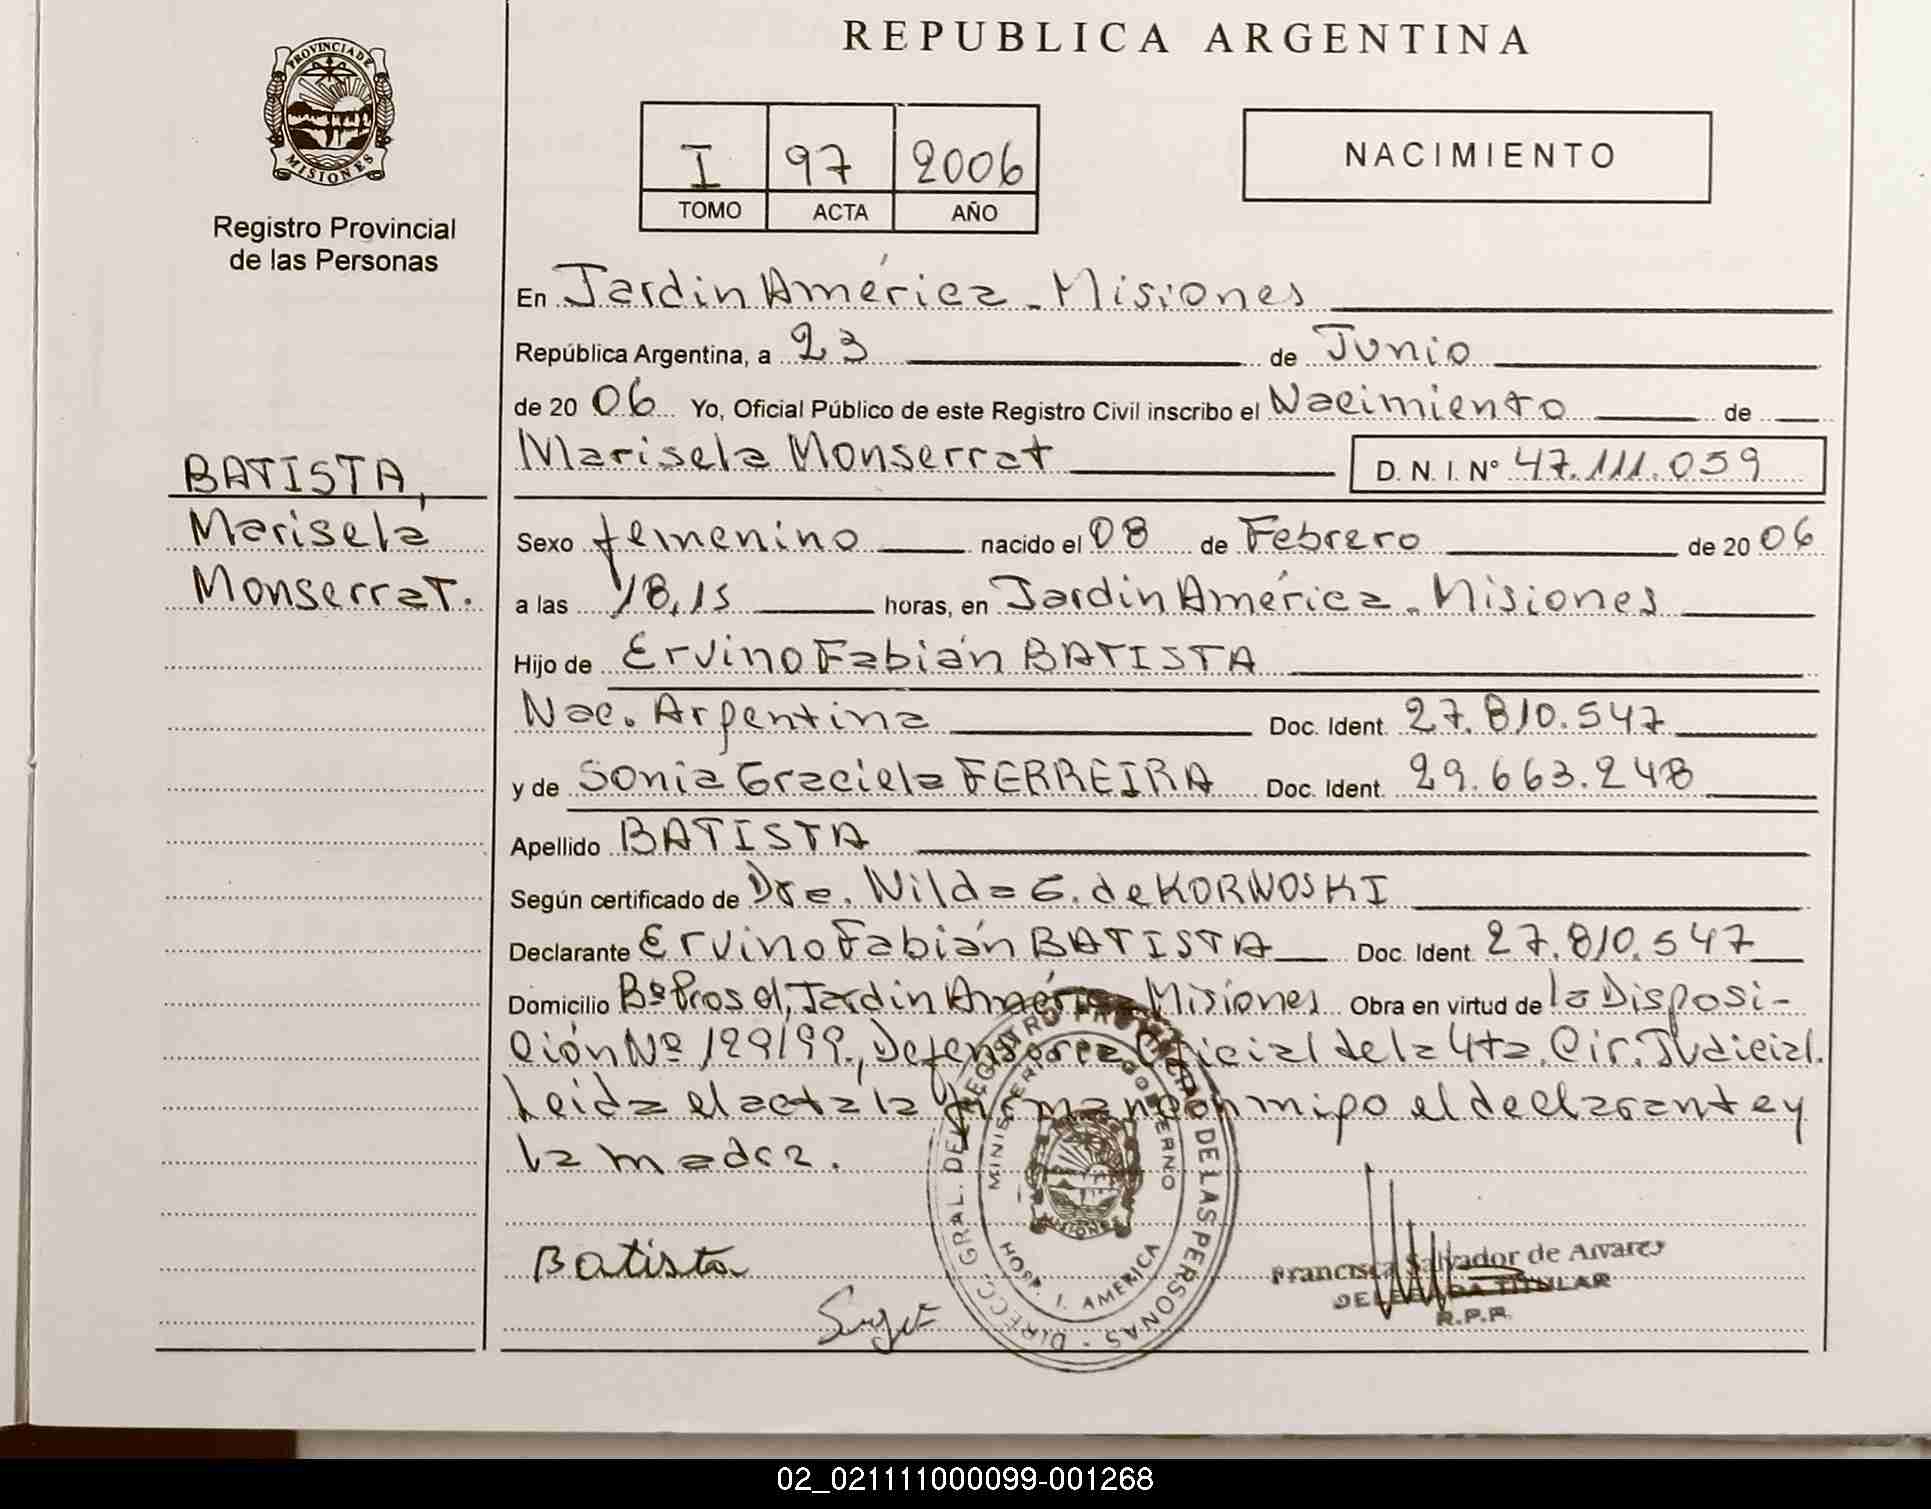 REPUBLICA ARGENTINA
PROVINCIA DE
MISIONES
Registro Provincial
de las Personas
I 97 2006
TOMO ACTA AÑO
NACIMIENTO
En Jardín América - Misiones
República Argentina, a 23 de Junio
de 20 06 Yo, Oficial Público de este Registro Civil inscribo el Nacimiento de
Marisela Monserrat D. N. I. N° 47.111.059
BATISTA,
Marisela
Monserrat.
Sexo femenino nacido el 08 de Febrero de 20 06
a las 18,15 horas, en Jardín América - Misiones
Hijo de Ervino Fabián BATISTA
Nac. Argentina Doc. Ident. 27.810.547
y de Sonia Graciela FERREIRA Doc. Ident. 29.663.248
Apellido BATISTA
Según certificado de Dra. Nilda G. de KORNOSKI
Declarante Ervino Fabián BATISTA Doc. Ident. 27.810.547
Domicilio Bº Prosol, Jardín América Misiones Obra en virtud de la Disposi-
ción Nº 129/99, Defensoría Oficial de la 4ta. Cir. Judicial.
Leida el acta la firman conmigo el declarante y
la madre.
DIRECC. GRAL. DEL REGISTRO PROVINCIAL DE LAS PERSONAS
MINISTERIO GOBIERNO
MISIONES
HOSP. J. AMERICA
Batista
Francisca Salvador de Alvarez
DELEGADA TITULAR
R.P.P.
02_021111000099-001268